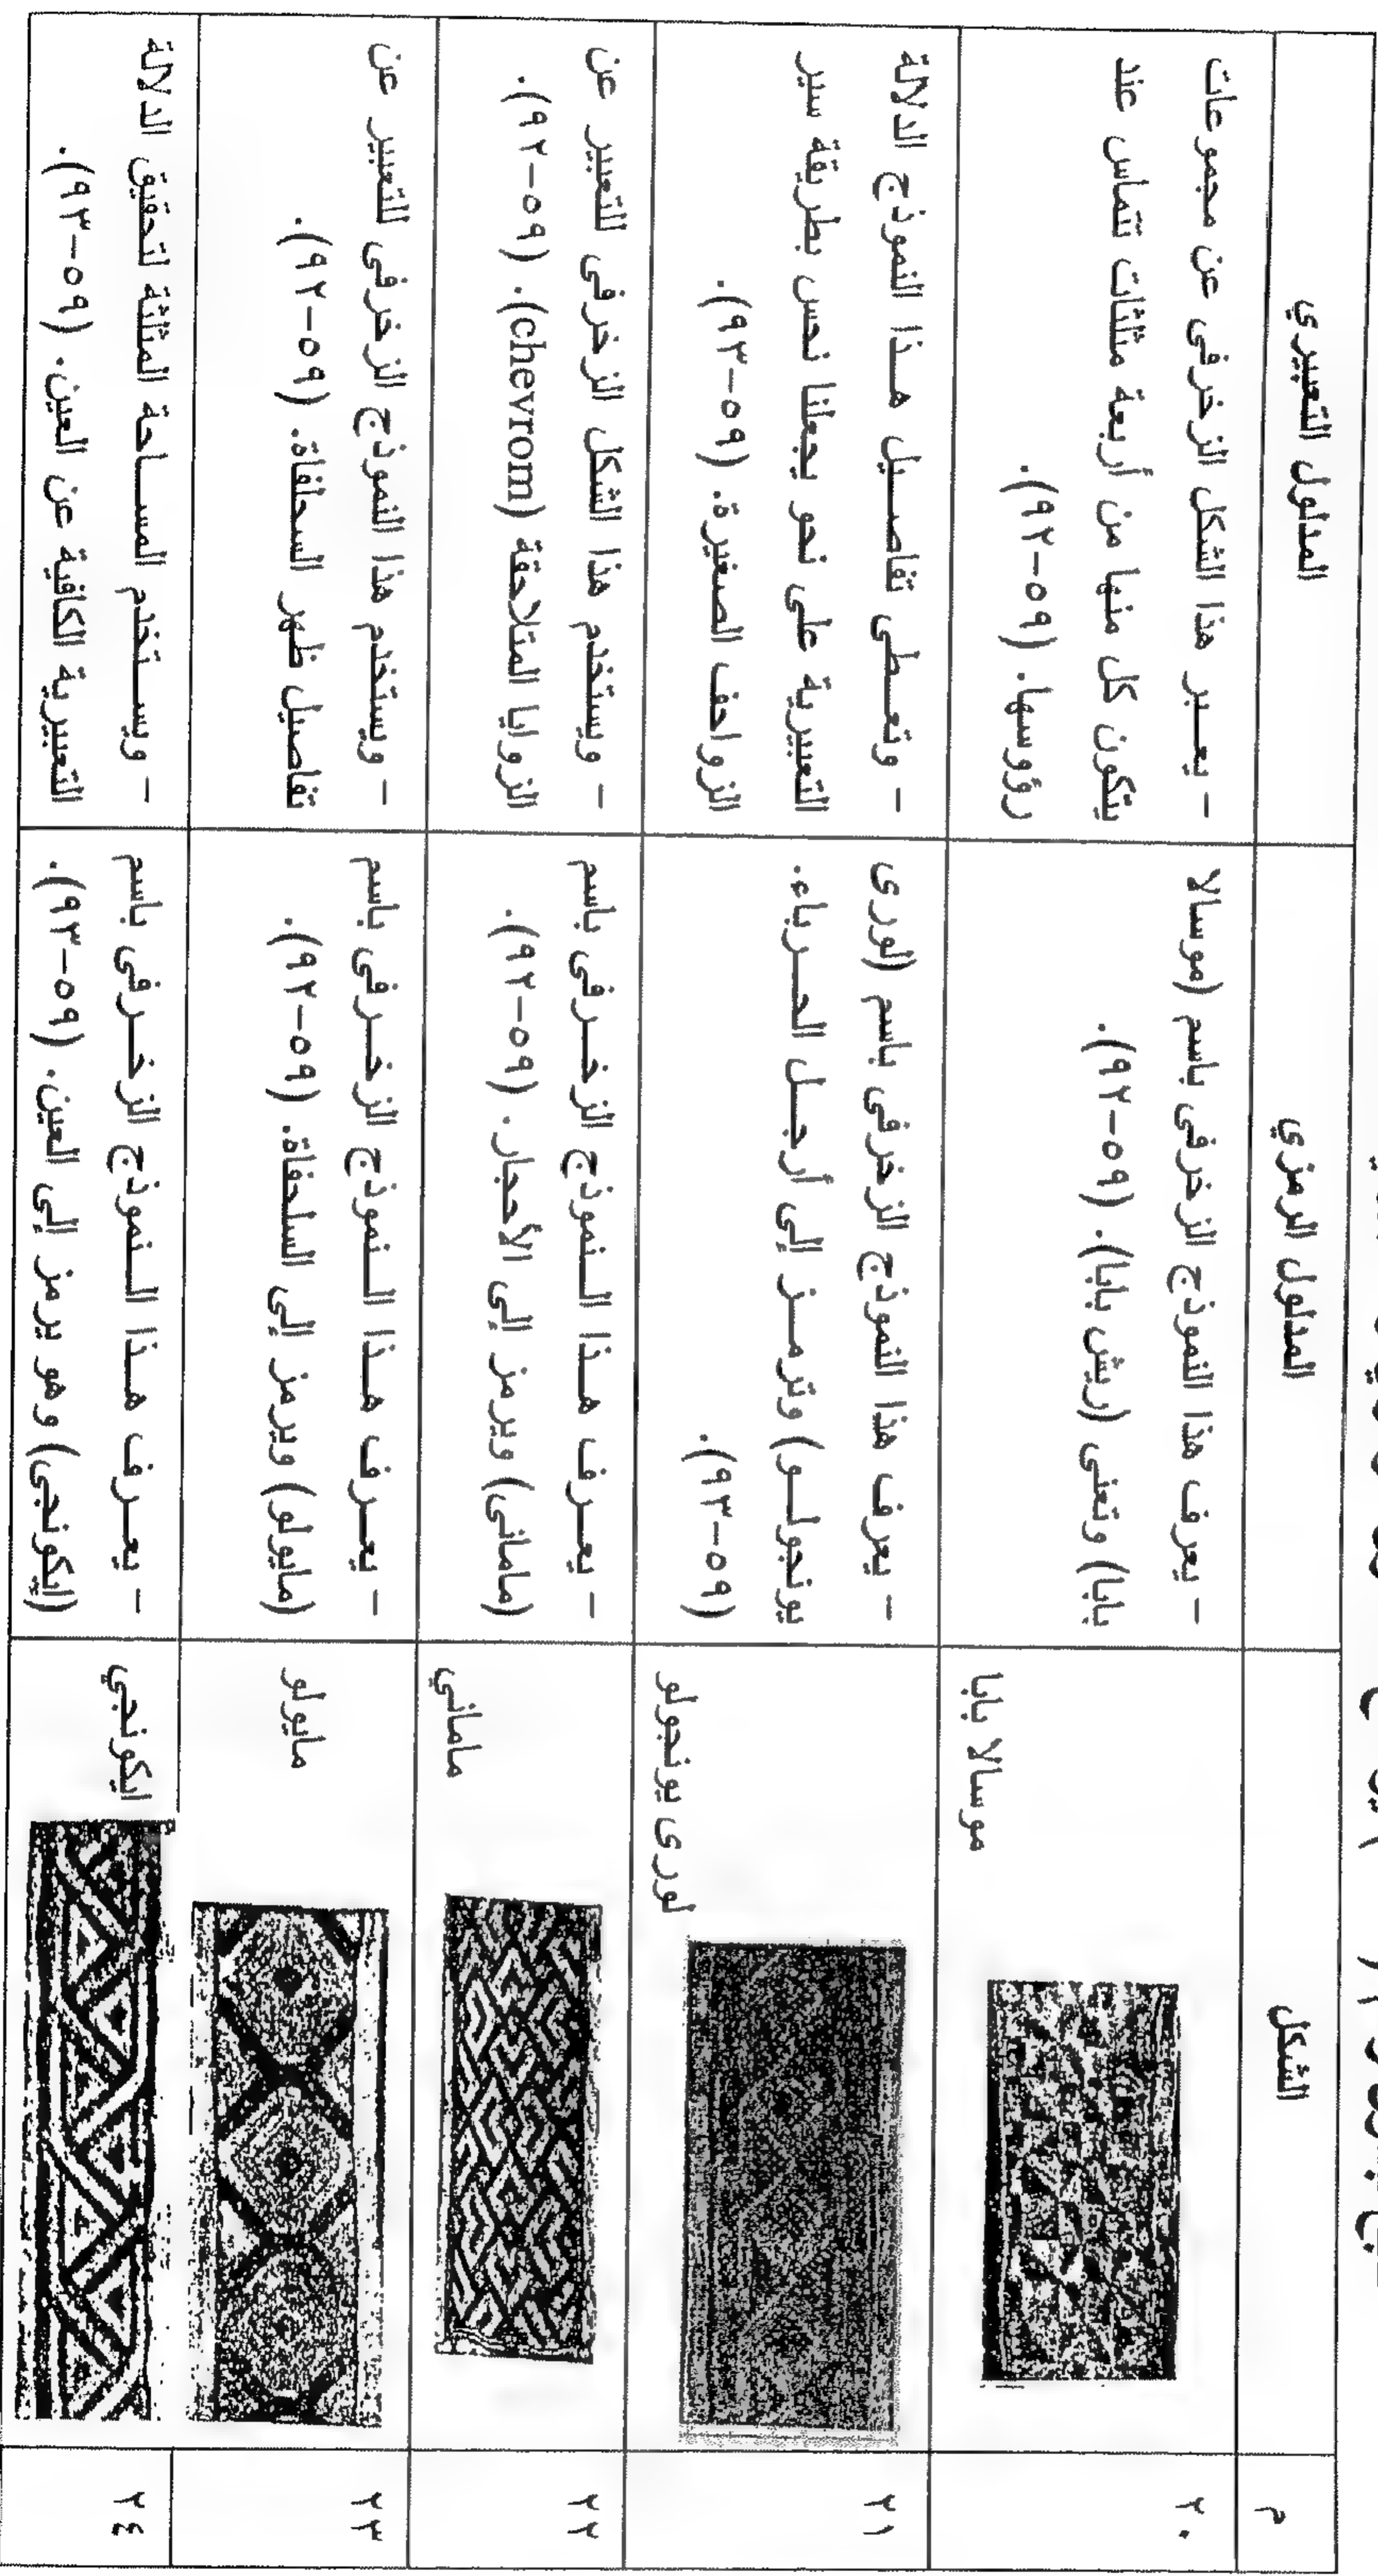 م
الشكل
المدلول الرمزي
المدلول التعبيري
٢٠
موسالا بابا
- يعرف هذا النموذج الزخرفى باسم (موسالا
بابا) وتعنى (ريش بابا). (٥٩-٩٢).
- يعبر هذا الشكل الزخرفى عن مجموعات
يتكون كل منها من أربعة مثلثات تتماس عند
رؤوسها. (٥٩-٩٢).
٢١
لورى يونجولو
- يعرف هذا النموذج الزخرفى باسم (لورى
يونجولو) وترمز إلى أرجل الحرباء.
(٥٩-٩٣).
- وتعطى تفاصيل هذا النموذج الدلالة
التعبيرية على نحو يجعلنا نحس بطريقة سير
الزواحف الصغيرة. (٥٩-٩٣).
٢٢
ماماني
- يعرف هذا النموذج الزخرفى باسم
(مامانى) ويرمز إلى الأحجار. (٥٩-٩٢).
- ويستخدم هذا الشكل الزخرفى للتعبير عن
الزوايا المتلاحقة (chevrom). (٥٩-٩٢).
٢٣
مايولو
- يعرف هذا النموذج الزخرفى باسم
(مايولو) ويرمز إلى السلحفاة. (٥٩-٩٢).
- ويستخدم هذا النموذج الزخرفى للتعبير عن
تفاصيل ظهر السحلفاة. (٥٩-٩٢).
٢٤
ايكونجي
- يعرف هذا النموذج الزخرفى باسم
(إيكونجى) وهو يرمز إلى العين. (٥٩-٩٣).
- ويستخدم المساحة المثلثة لتحقيق الدلالة
التعبيرية الكافية عن العين. (٥٩-٩٣).